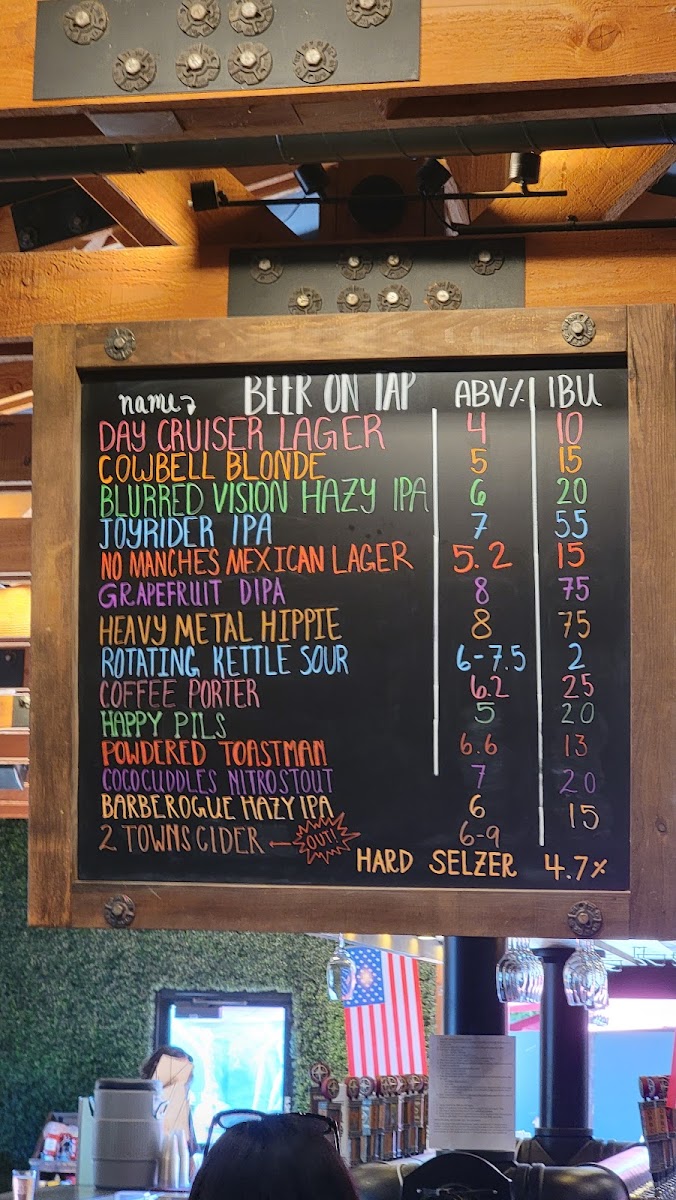 name BEER ON TAP ABV% IBU
DAY CRUISER LAGER 4 10
COWBELL BLONDE 5 15
BLURRED VISION HAZY IPA 6 20
JOYRIDER IPA 7 55
NO MANCHES MEXICAN LAGER 5.2 15
GRAPEFRUIT DIPA 8 75
HEAVY METAL HIPPIE 8 75
ROTATING KETTLE SOUR 6-7.5 2
COFFEE PORTER 6.2 25
HAPPY PILS 5 20
POWDERED TOASTMAN 6.6 13
COCOCUDDLES NITRO STOUT 7 20
BARBEROGUE HAZY IPA 6 15
2 TOWNS CIDER ← OUT! 6-9
HARD SELZER 4.7%